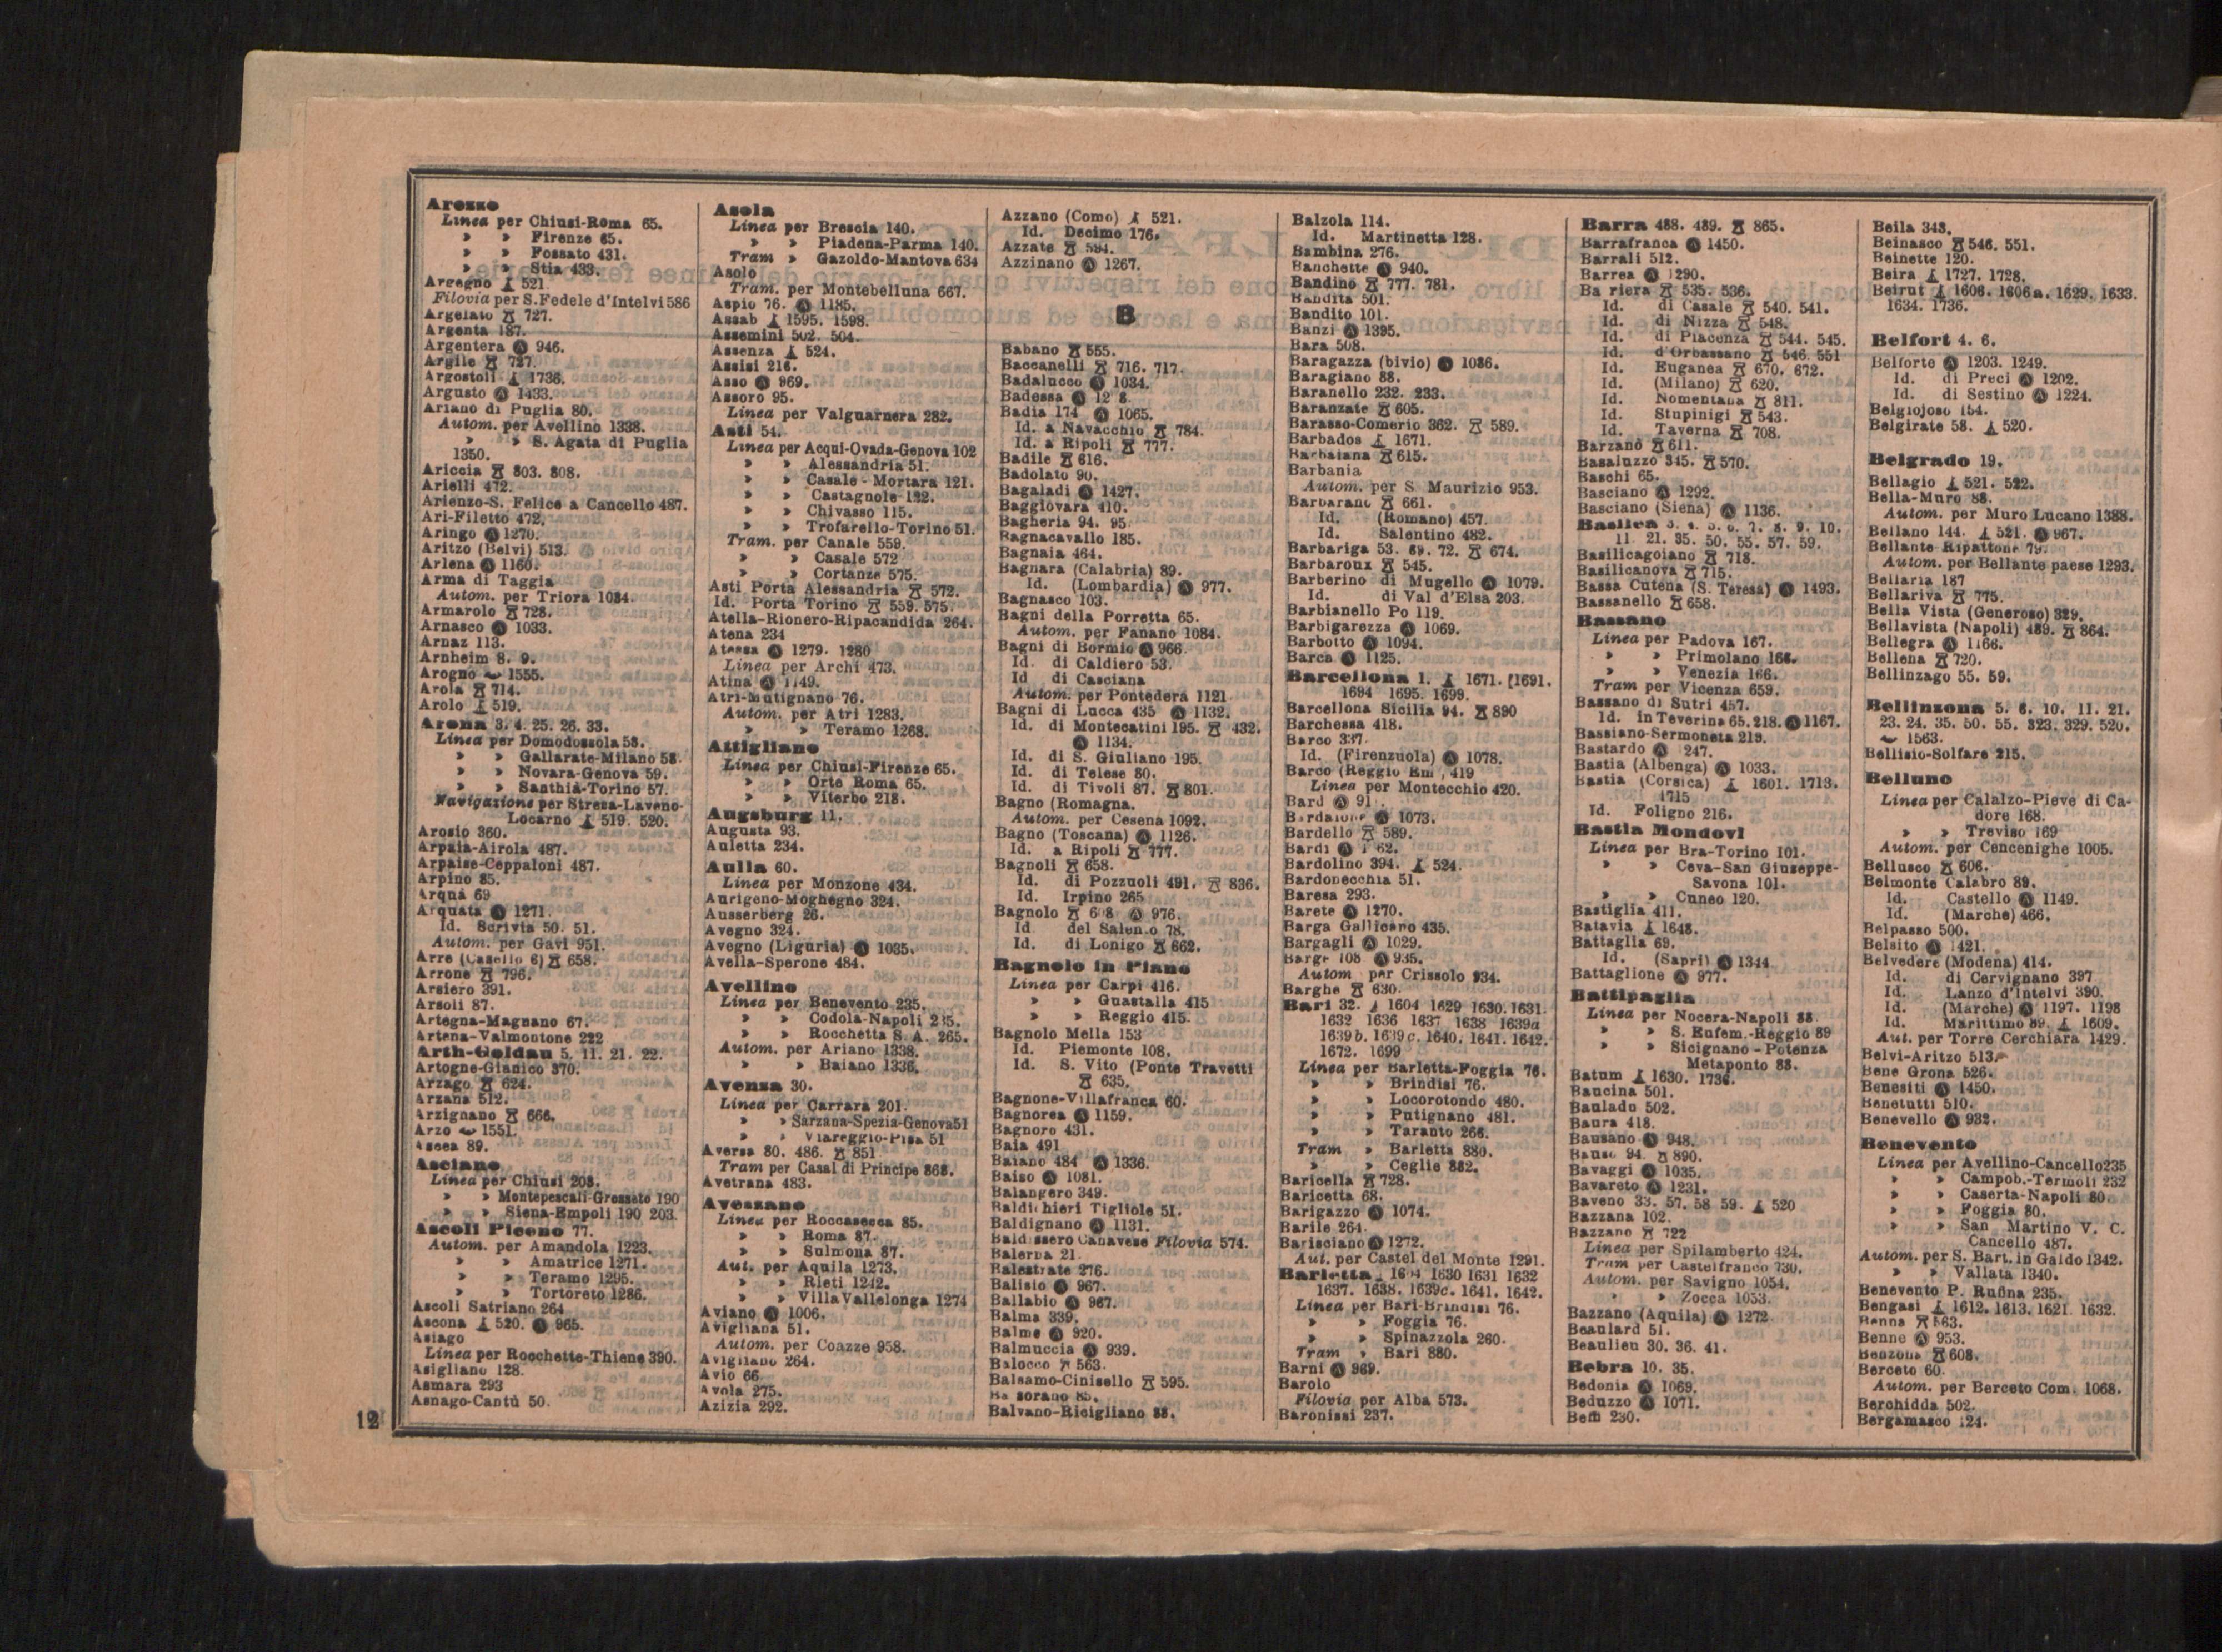 Arezzo
Linea per Chiusi-Roma 65.
» » Firenze 65.
» » Fossato 431.
» » Stia 433.
Argegno 521
Filovia per S.Fedele d'Intelvi 586
Argelato 727.
Argenta 187.
Argentera Ⓐ 946.
Argile 727.
Argostoli 1736.
Argusto Ⓐ 1433.
Ariano di Puglia 80.
Autom. per Avellino 1338.
» » S. Agata di Puglia
1350.
Ariccia 803. 808.
Arielli 472.
Arienzo-S. Felice a Cancello 487.
Ari-Filetto 472.
Aringo Ⓐ 1270.
Aritzo (Belvi) 513.
Arlena Ⓐ 1160.
Arma di Taggia
Autom. per Triora 1034.
Armarolo 728.
Arnasco Ⓐ 1033.
Arnaz 113.
Arnheim 8. 9.
Arogno 1555.
Arola 714.
Arolo 519.
Arona 3. 4. 25. 26. 33.
Linea per Domodossola 58.
» » Gallarate-Milano 58.
» » Novara-Genova 59.
» » Santhià-Torino 57.
Navigazione per Stresa-Laveno-
Locarno 519. 520.
Arosio 360.
Arpaia-Airola 487.
Arpaise-Ceppaloni 487.
Arpino 85.
Arquà 69
Arquata Ⓐ 1271.
Id. Scrivia 50. 51.
Autom. per Gavi 951.
Arre (Casello 6) 658.
Arrone 796.
Arsiero 391.
Arsoli 87.
Artegna-Magnano 67.
Artena-Valmontone 222
Arth-Goldau 5. 11. 21. 22.
Artogne-Gianico 370.
Arzago 624.
Arzana 512.
Arzignano 666.
Arzo 1551.
Ascea 89.
Asciano
Linea per Chiusi 203.
» » Montepescali-Grosseto 190
» » Siena-Empoli 190 203.
Ascoli Piceno 77.
Autom. per Amandola 1223.
» » Amatrice 1271.
» » Teramo 1295.
» » Tortoreto 1286.
Ascoli Satriano 264
Ascona 520. Ⓐ 965.
Asiago
Linea per Rocchette-Thiene 390.
Asigliano 128.
Asmara 293
Asnago-Cantù 50.
Asola
Linea per Brescia 140.
» » Piadena-Parma 140.
Tram » Gazoldo-Mantova 634
Asolo
Tram. per Montebelluna 667.
Aspio 76. Ⓐ 1185.
Assab 1595. 1598.
Assemini 502. 504.
Assenza 524.
Assisi 216.
Asso Ⓐ 969.
Assoro 95.
Linea per Valguarnera 282.
Asti 54.
Linea per Acqui-Ovada-Genova 102
» » Alessandria 51.
» » Casale - Mortara 121.
» » Castagnole 122.
» » Chivasso 115.
» » Trofarello-Torino 51.
Tram. per Canale 559.
» » Casale 572
» » Cortanze 575.
Asti Porta Alessandria 572.
Id. Porta Torino 559. 575.
Atella-Rionero-Ripacandida 264.
Atena 234
Atessa Ⓐ 1279. 1280
Linea per Archi 473.
Atina Ⓐ 1149.
Atri-Mutignano 76.
Autom. per Atri 1283.
» » Teramo 1268.
Attigliano
Linea per Chiusi-Firenze 65.
» » Orte Roma 65.
» » Viterbo 218.
Augsburg 11.
Augusta 93.
Auletta 234.
Aulla 60.
Linea per Monzone 434.
Aurigeno-Moghegno 324.
Ausserberg 26.
Avegno 324.
Avegno (Liguria) Ⓐ 1035.
Avella-Sperone 484.
Avellino
Linea per Benevento 235.
» » Codola-Napoli 235.
» » Rocchetta S. A. 265.
Autom. per Ariano 1338.
» » Baiano 1336.
Avenza 30.
Linea per Carrara 201.
» » Sarzana-Spezia-Genova 51
» » Viareggio-Pisa 51
Aversa 80. 486. 851
Tram per Casal di Principe 868.
Avetrana 483.
Avezzano
Linea per Roccasecca 85.
» » Roma 87.
» » Sulmona 87.
Aut. per Aquila 1273.
» » Rieti 1242.
» » Villa Vallelonga 1274
Aviano Ⓐ 1006.
Avigliana 51.
Autom. per Coazze 958.
Avigliano 264.
Avio 66
Avola 275.
Azizia 292.
Azzano (Como) 521.
Id. Decimo 176.
Azzate 594.
Azzinano Ⓐ 1267.
B
Babano 555.
Baccanelli 716. 717.
Badalucco Ⓐ 1034.
Badessa Ⓐ
Badia 174 Ⓐ 1065.
Id. a Navacchio 784.
Id. a Ripoli 777.
Badile 616.
Badolato 90.
Bagaladi Ⓐ 1427.
Baggiovara 410.
Bagheria 94. 95
Bagnacavallo 185.
Bagnaia 464.
Bagnara (Calabria) 89.
Id. (Lombardia) Ⓐ 977.
Bagnasco 103.
Bagni della Porretta 65.
Autom. per Fanano 1084.
Bagni di Bormio Ⓐ 966
Id. di Caldiero 53.
Id di Casciana
Autom. per Pontedera 1121
Bagni di Lucca 435 Ⓐ 1132.
Id. di Montecatini 195. 432.
Ⓐ 1134.
Id. di S. Giuliano 195.
Id. di Telese 80.
Id. di Tivoli 87. 801.
Bagno (Romagna.
Autom. per Cesena 1092.
Bagno (Toscana) Ⓐ 1126.
Id. a Ripoli 777.
Bagnoli 658.
Id. di Pozzuoli 491. 836.
Id. Irpino 265
Bagnolo Ⓐ 976.
Id del Salento 78.
Id. di Lonigo 662.
Bagnolo in Piano
Linea per Carpi 416.
» » Guastalla 415
» » Reggio 415.
Bagnolo Mella 153
Id. Piemonte 108.
Id. S. Vito (Ponte Travetti
635.
Bagnone-Villafranca 60.
Bagnorea Ⓐ 1159.
Bagnoro 431.
Baia 491
Baiano 484 Ⓐ 1336.
Baiso Ⓐ 1081.
Balangero 349.
Baldichieri Tigliole 51.
Baldignano Ⓐ 1131.
Baldissero Canavese Filovia 574.
Balerna 21.
Balestrate 276.
Balisio Ⓐ 967.
Ballabio Ⓐ 967.
Balma 339.
Balme Ⓐ 920.
Balmuccia Ⓐ 939.
Balocco 563.
Balsamo-Cinisello 595.
Ba sorano 85.
Balvano-Ricigliano 88.
Balzola 114.
Id. Martinetta 128.
Bambina 276.
Banchette Ⓐ 940.
Bandino 777. 781.
Bandita 501.
Bandito 101.
Banzi Ⓐ 1395.
Bara 508.
Baragazza (bivio) Ⓐ 1086.
Baragiano 88.
Baranello 232. 233.
Baranzate 605.
Barasso-Comerio 362. 589.
Barbados 1671.
Barbaiana 615.
Barbania
Autom. per S Maurizio 953.
Barbarano 661.
Id. (Romano) 457.
Id. Salentino 482.
Barbariga 53. 69. 72. 674.
Barbaroux 545.
Barberino di Mugello Ⓐ 1079.
Id. di Val d'Elsa 203.
Barbianello Po 119.
Barbigarezza Ⓐ 1069.
Barbotto Ⓐ 1094.
Barca Ⓐ 1125.
Barcellona 1. 1671. [1691.
1694 1695. 1699.
Barcellona Sicilia 94. 890
Barchessa 418.
Barco 337.
Id. (Firenzuola) Ⓐ 1078.
Barco (Reggio Em , 419
Linea per Montecchio 420.
Bard Ⓐ 91
Bardalone Ⓐ 1073.
Bardello 589.
Bardi Ⓐ
Bardolino 394. 524.
Bardonecchia 51.
Baresa 293.
Barete Ⓐ 1270.
Barga Gallicano 435.
Bargagli Ⓐ 1029.
Barge 108 Ⓐ 935.
Autom per Crissolo 934.
Barghe 630.
Bari 32. 1604 1629 1630. 1631.
1632 1636 1637 1638 1639a
1639b. 1639c. 1640. 1641. 1642.
1672. 1699
Linea per Barletta-Foggia 76.
» » Brindisi 76.
» » Locorotondo 480.
» » Putignano 481.
» » Taranto 266.
Tram » Barletta 880.
» » Ceglie 882.
Baricella 728.
Baricetta 68.
Barigazzo Ⓐ 1074.
Barile 264.
Barisciano Ⓐ 1272.
Aut. per Castel del Monte 1291.
Barletta 1604 1630 1631 1632
1637. 1638. 1639c. 1641. 1642.
Linea per Bari-Brindisi 76.
» » Foggia 76.
» » Spinazzola 260.
Tram » Bari 880.
Barni Ⓐ 969.
Barolo
Filovia per Alba 573.
Baronissi 237.
Barra 488. 489. 865.
Barrafranca Ⓐ 1450.
Barrali 512.
Barrea Ⓐ 1290.
Ba riera 535. 536.
Id. di Casale 540. 541.
Id. di Nizza 548.
Id. di Piacenza 544. 545.
Id. d'Orbassano 546. 551
Id. Euganea 670. 672.
Id. (Milano) 620.
Id. Nomentana 811.
Id. Stupinigi 543.
Id. Taverna 708.
Barzanò 611.
Basaluzzo 345. 570.
Baschi 65.
Basciano Ⓐ 1292.
Basciano (Siena) Ⓐ 1136.
Basilea 3. 4. 5. 6. 7. 8. 9. 10.
11. 21. 35. 50. 55. 57. 59.
Basilicagoiano 718.
Basilicanova 715.
Bassa Cutena (S. Teresa) Ⓐ 1493.
Bassanello 658.
Bassano
Linea per Padova 167.
» » Primolano 166.
» » Venezia 166.
Tram per Vicenza 659.
Bassano di Sutri 457.
Id. in Teverina 65. 218. Ⓐ 1167.
Bassiano-Sermoneta 219.
Bastardo Ⓐ 247.
Bastia (Albenga) Ⓐ 1033.
Bastia (Corsica) 1601. 1713.
1715
Id. Foligno 216.
Bastia Mondovì
Linea per Bra-Torino 101.
» » Ceva-San Giuseppe-
Savona 101.
» » Cuneo 120.
Bastiglia 411.
Batavia 1648.
Battaglia 69.
Id. (Sapri) Ⓐ 1344
Battaglione Ⓐ 977.
Battipaglia
Linea per Nocera-Napoli 88.
» » S. Eufem.-Reggio 89
» » Sicignano - Potenza
Metaponto 88.
Batum 1630. 1736.
Baucina 501.
Bauladu 502.
Baura 418.
Bausano Ⓐ 948.
Bauso 94. 890.
Bavaggi Ⓐ 1035.
Bavareto Ⓐ 1231.
Baveno 33. 57. 58 59. 520
Bazzana 102.
Bazzano 722
Linea per Spilamberto 424.
Tram per Castelfranco 730.
Autom. per Savigno 1054.
» » Zocca 1053.
Bazzano (Aquila) Ⓐ 1272
Beaulard 51.
Beaulieu 30. 36. 41.
Bebra 10. 35.
Bedonia Ⓐ 1069.
Beduzzo Ⓐ 1071.
Beffi 230.
Beila 343.
Beinasco 546. 551.
Beinette 120.
Beira 1727. 1728.
Beirut 1606. 1606a. 1629. 1633.
1634. 1736.
Belfort 4. 6.
Belforte Ⓐ 1203. 1249.
Id. di Preci Ⓐ 1202.
Id. di Sestino Ⓐ 1224.
Belgiojoso 154.
Belgirate 58. 520.
Belgrado 19.
Bellagio 521. 522.
Bella-Muro 88.
Autom. per Muro Lucano 1388.
Bellano 144. 521. Ⓐ 967.
Bellante Ripattone 79.
Autom. per Bellante paese 1293.
Bellaria 187
Bellariva 775.
Bella Vista (Generoso) 329.
Bellavista (Napoli) 489. 864.
Bellegra Ⓐ 1166.
Bellena 720.
Bellinzago 55. 59.
Bellinzona 5. 6. 10. 11. 21.
23. 24. 35. 50. 55. 323. 329. 520.
1563.
Bellisio-Solfare 215.
Belluno
Linea per Calalzo-Pieve di Ca-
dore 168.
» » Treviso 169
Autom. per Cencenighe 1005.
Bellusco 606.
Belmonte Calabro 89.
Id. Castello Ⓐ 1149.
Id. (Marche) 466.
Belpasso 500.
Belsito Ⓐ 1421.
Belvedere (Modena) 414.
Id. di Cervignano 397
Id. Lanzo d'Intelvi 390.
Id. (Marche) Ⓐ 1197. 1198
Id. Marittimo 89. 1609.
Aut. per Torre Cerchiara 1429.
Belvì-Aritzo 513.
Bene Grona 526.
Benesiti Ⓐ 1450.
Benetutti 510.
Benevello Ⓐ 932.
Benevento
Linea per Avellino-Cancello 235
» » Campob.-Termoli 232
» » Caserta-Napoli 80.
» » Foggia 80.
» » San Martino V. C.
Cancello 487.
Autom. per S. Bart. in Galdo 1342.
» » Vallata 1340.
Benevento P. Rufina 235.
Bengasi 1612. 1613. 1621. 1632.
Benna 563.
Benne Ⓐ 953.
Benzona 608.
Berceto 60.
Autom. per Berceto Com. 1068.
Berchidda 502.
Bergamasco 124.
12